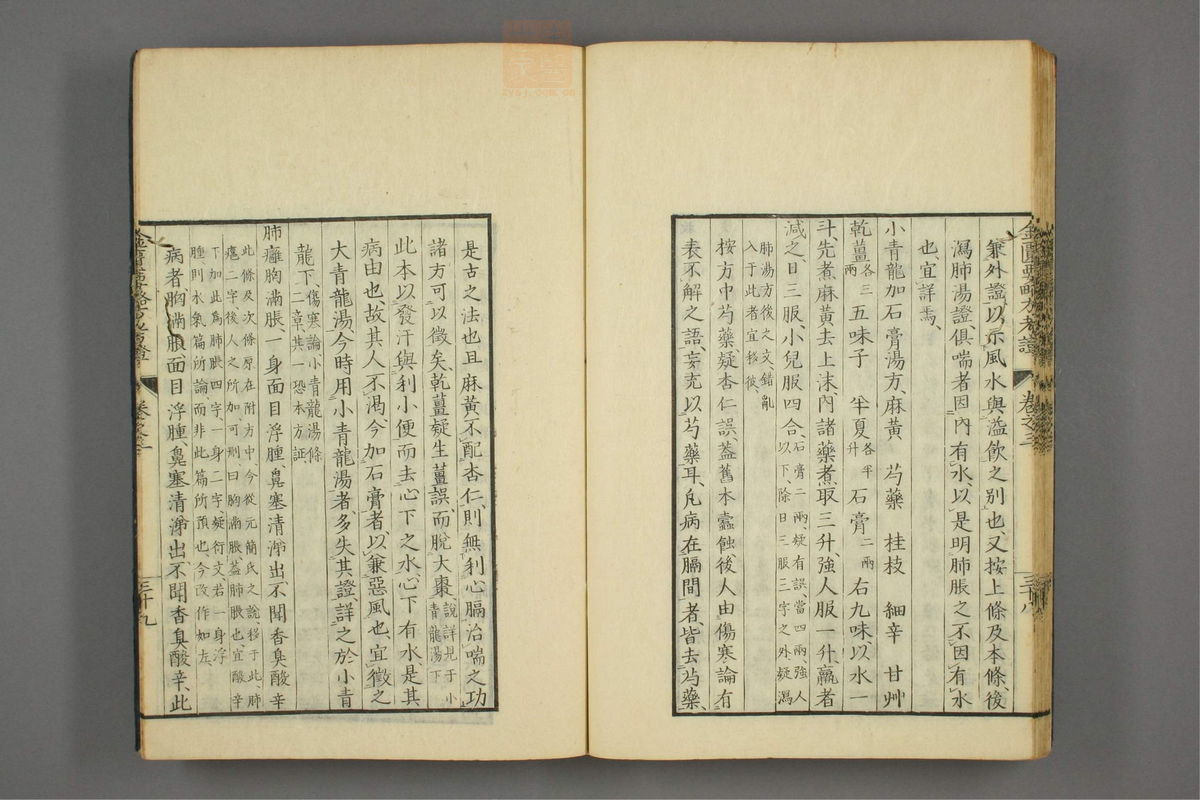 兼外證、以示風水與溢飲之別也、又按上條及本條、後
瀉肺湯證、俱喘者因內有水、以是明肺脹之不因有水
也、宜詳焉、
小青龍加石膏湯方、麻黃 芍藥 桂枝 細辛 甘艸
乾薑各三兩 五味子 半夏各半升 石膏二兩 右九味、以水一
斗先煮麻黃去上沫內諸藥煮取三升、強人服一升、羸者
減之、日三服、小兒服四合、石膏二兩、疑有誤、當四兩、強人以下、除日三服三字之外疑瀉
肺湯方後之文、錯亂入于此者宜移彼、
按方中芍藥疑杏仁誤蓋舊本蠹蝕後人由傷寒論有
表不解之語、妄充以芍藥耳、凡病在膈間者、皆去芍藥、
金匱要略方考證 卷之三 三十八
是古之法也且麻黃不配杏仁、則無利心膈治喘之功
諸方可以徵矣、乾薑疑生薑誤、而脫大棗、說詳見于小青龍湯下
此本以發汗與利小便而去心下之水、心下有水是其
病由也、故其人不渴今加石膏者以兼惡風也、宜徵之
大青龍湯、今時用小青龍湯者、多失其證詳之於小青
龍下、傷寒論小青龍湯條二章、其一恐本方証
肺癰胸滿脹、一身面目浮腫、鼻塞清涕出、不聞香臭酸辛
此條及次條原在附方中今從元簡氏之說、移于此肺
癰二字後人之所加可刪曰胸滿脹蓋肺脹也、宜酸辛
下加此爲肺脹四字、一身二字、疑衍文若一身浮
腫、則水氣篇所論而非此篇所預也、今改作如左、
病者、胸滿脹、面目浮腫、鼻塞清涕出、不聞香臭酸辛、此
金匱要略方考證 卷之三 三十九